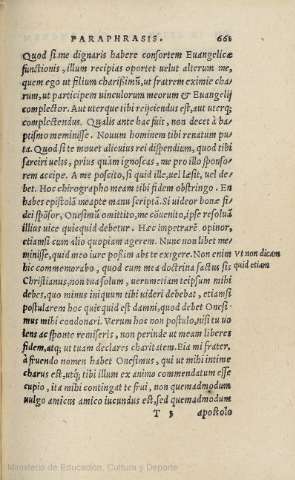 PARAPHRASIS. 661
Quod si me dignaris habere consortem Euangelicæ
functionis, illum recipias oportet uelut alterum me,
quem ego ut filium charißimũ, ut fratrem eximie cha
rum, ut participem uinculorum meorum & Euangelij
complector. Aut uterque tibi reijciendus est, aut uterq;
complectendus. Qualis ante hac fuit, non decet à ba
ptismo meminisse. Nouum hominem tibi renatum pu
ta. Quod si te mouet alicuius rei dispendium, quod tibi
sarciri uelis, prius quàm ignoscas, me pro illo sponso
rem accipe. A me poscito, si quid ille, uel læsit, uel de
bet. Hoc chirographo meam tibi fidem obstringo. En
habes epistolã meapte manu scriptã. Si uideor bonæ fi
dei spõsor, Onesimũ omittito, me cõuenito, ipse soluã
illius uice quicquid debetur. Hæc impetrarē opinor,
etiamsi cum alio quopiam agerem. Nunc non libet me
minisse, quid meo iure poßim abs te exigere. Non enim
Vt non dicam
hic commemorabo, quod cum mea doctrina factus sis
quid etiam
Christianus, non tua solum, uerumetiam teipsum mihi
debes, quo minus iniquum tibi uideri debebat, etiamsi
postularem hoc quicquid est damni, quod debet Onesi
mus mihi condonari. Verum hoc non postulo, nisi tu uo
lens ac sponte remiseris, non perinde ut meam liberes
fidem, atq; ut tuam declares charitatem. Eia mi frater,
à fruendo nomen habet Onesimus, qui ut mihi intime
charus est, utq; tibi illum ex animo commendatum esse
cupio, ita mihi contingat te frui, non quemadmodum
uulgo amicus amico iucundus est, sed quemadmodum
T 3 apostolo
Ministerio de Educación, Cultura y Deporte